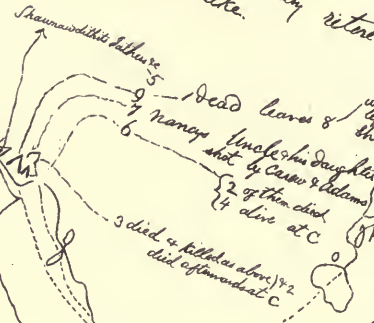 ake.
Shawnawdithits Father &c
5
9
7
6
dead leaves 8
Nancys Uncle & his daughter
shot by Carew & Adams
2 of them died
4 alive at C
3 died & killed as above) & 2
died afterwards at C